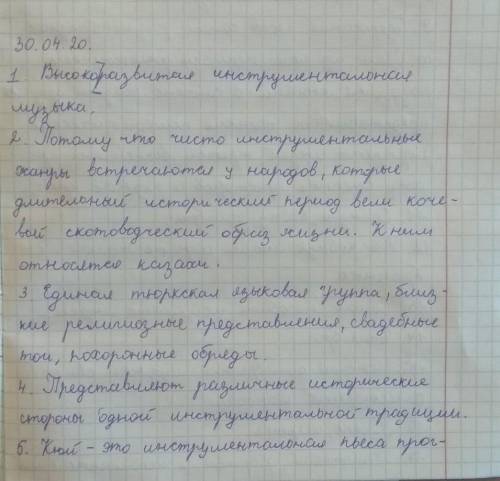 30.04.20.
1 Высокоразвитая инструментальная
музыка.
2. Потому что чисто инструментальные
жанры встречаются у народов, которые
длительный исторический период вели коче-
вой скотоводческий образ жизни. К ним
относятся казахи.
3 Единая тюркская языковая группа, близ-
кие религиозные представления, свадебные
тои, похоронные обряды.
4. Представляют различные исторические
стороны одной инструментальной традиции.
5. Кюй - это инструментальная пьеса прог-